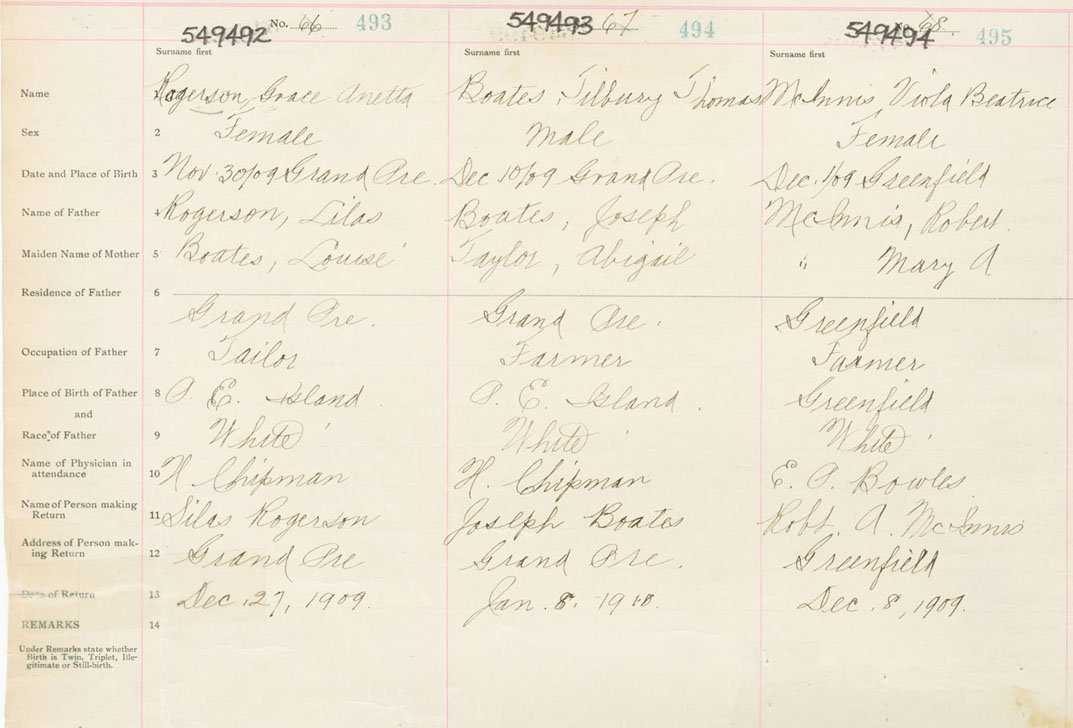 549492 No. 66 493 549493 67 494 549494 68. 495
Surname first Surname first Surname first
Name Rogerson, Grace Anetta Boates, Tilbury Thomas McInnis, Viola Beatrice
Sex 2 Female Male Female
Date and Place of Birth 3 Nov 30/09 Grand Pre. Dec 10/09 Grand Pre. Dec. 1/09 Greenfield
Name of Father 4 Rogerson, Silas Boates, Joseph McInnis, Robert.
Maiden Name of Mother 5 Boates, Louise Taylor, Abigail " Mary A
Residence of Father 6
Grand Pre. Grand Pre. Greenfield
Occupation of Father 7 Tailor Farmer Farmer
Place of Birth of Father 8 P. E. Island. P. E. Island. Greenfield
and
Race of Father 9 White White White
Name of Physician in
attendance 10 H. Chipman H. Chipman E. P. Bowles
Name of Person making
Return 11 Silas Rogerson Joseph Boates Robt. A. McInnis
Address of Person mak-
ing Return 12 Grand Pre Grand Pre. Greenfield
Date of Return 13 Dec. 27, 1909. Jan. 8. 1910. Dec. 8, 1909.
REMARKS 14
Under Remarks state whether
Birth is Twin, Triplet, Ille-
gitimate or Still-birth.